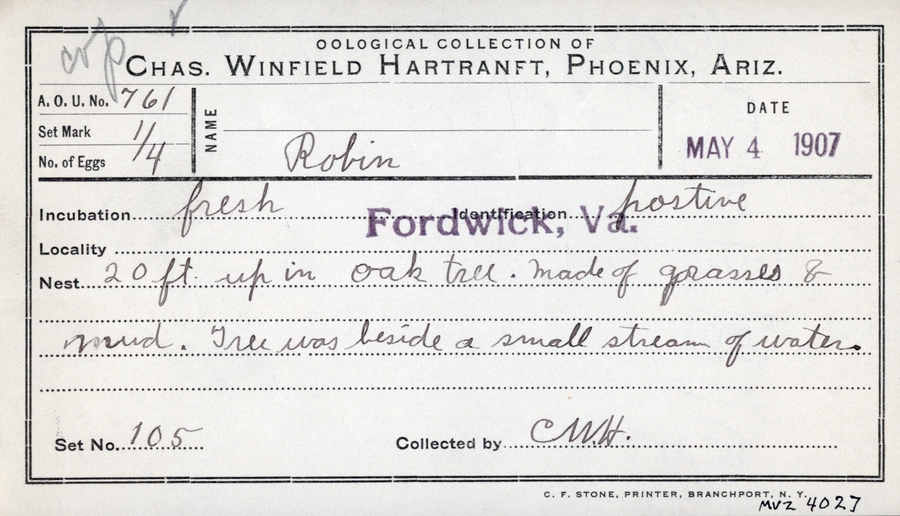 OOLOGICAL COLLECTION OF
CHAS. WINFIELD HARTRANFT, PHOENIX, ARIZ.
A. O. U. No. 761
Set Mark 1/4
No. of Eggs
NAME
Robin
DATE
MAY 4 1907
Incubation fresh Identification postive
Fordwick, Va.
Locality
Nest 20 ft. up in oak tree. Made of grasses &
mud. Tree was beside a small stream of water.
Set No. 105 Collected by C.W.H.
C. F. STONE, PRINTER, BRANCHPORT, N. Y.
MVZ 4027